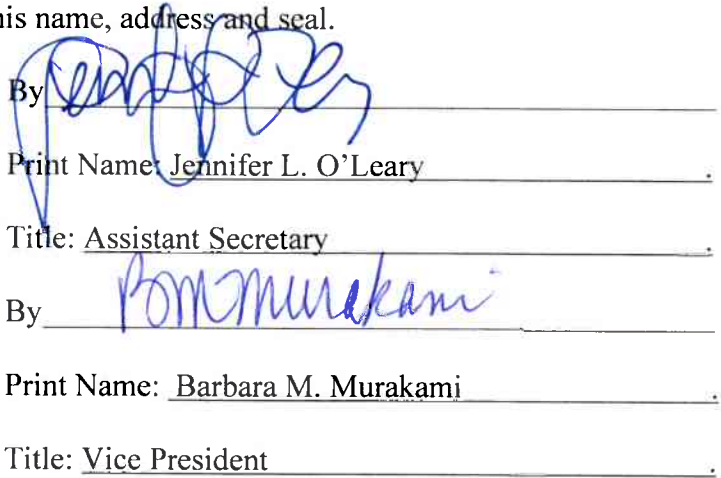 his name, address and seal.
By
Print Name: Jennifer L. O'Leary .
Title: Assistant Secretary .
By BMMurakami
Print Name: Barbara M. Murakami .
Title: Vice President .